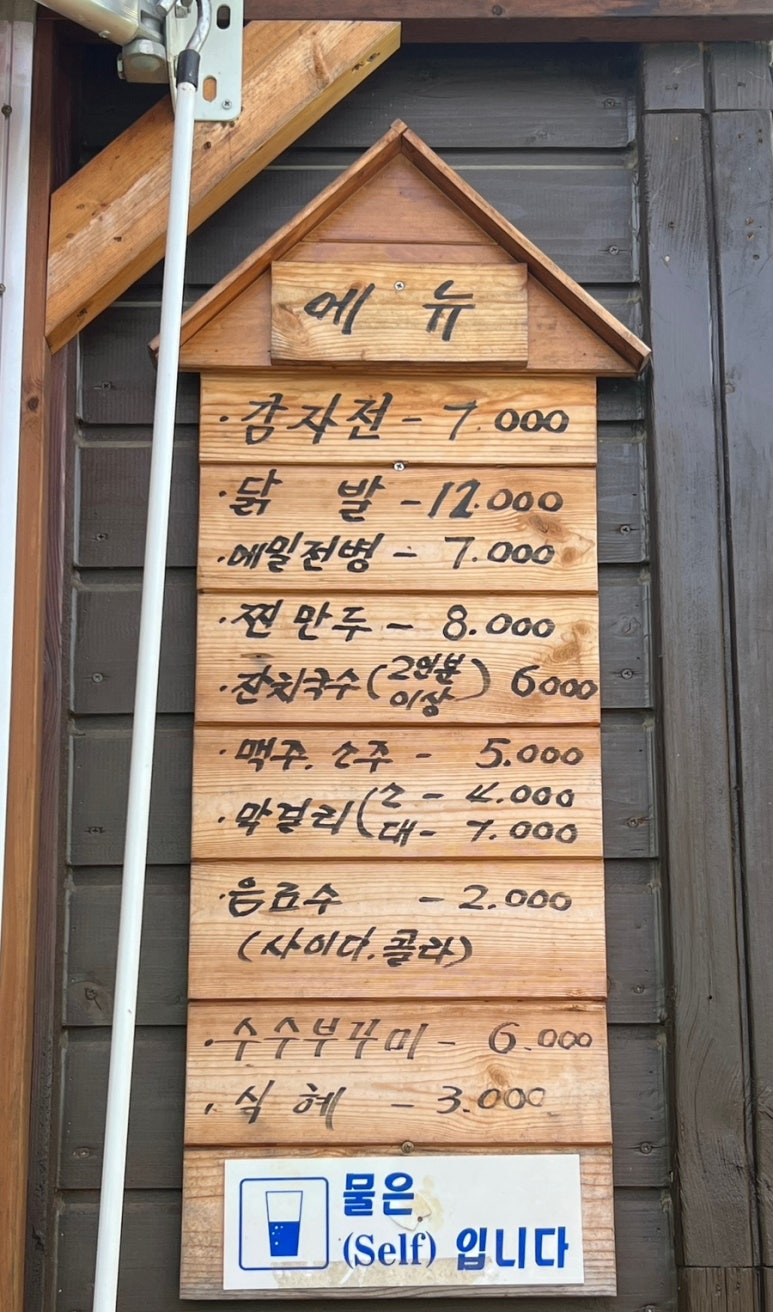 메뉴
·감자전 - 7.000
·닭 발 - 12.000
·메밀전병 - 7.000
·찐만두 - 8.000
·잔치국수 (2인분 이상) 6000
·맥주. 소주 - 5.000
·막걸리 (소 - 4.000
대 - 7.000
·음료수 - 2.000
(사이다.콜라)
·수수부꾸미 - 6.000
·식 혜 - 3.000
물은
(Self) 입니다